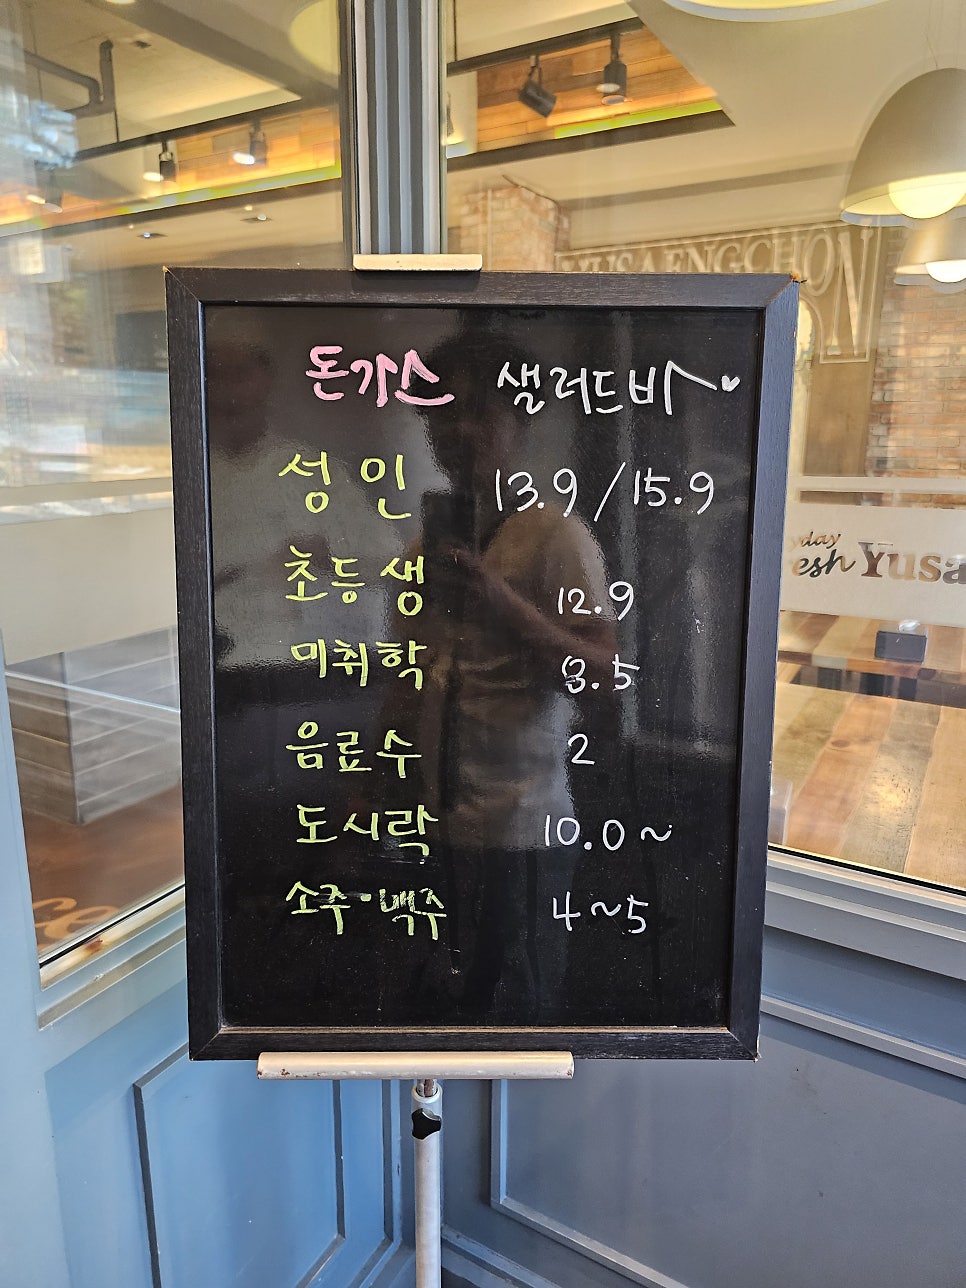 YUSAENGCHON
돈까스 샐러드바
성인 13.9 / 15.9
초등생 12.9
미취학 8.5
음료수 2
도시락 10.0 ~
소주·맥주 4 ~ 5
yday
esh Yusa